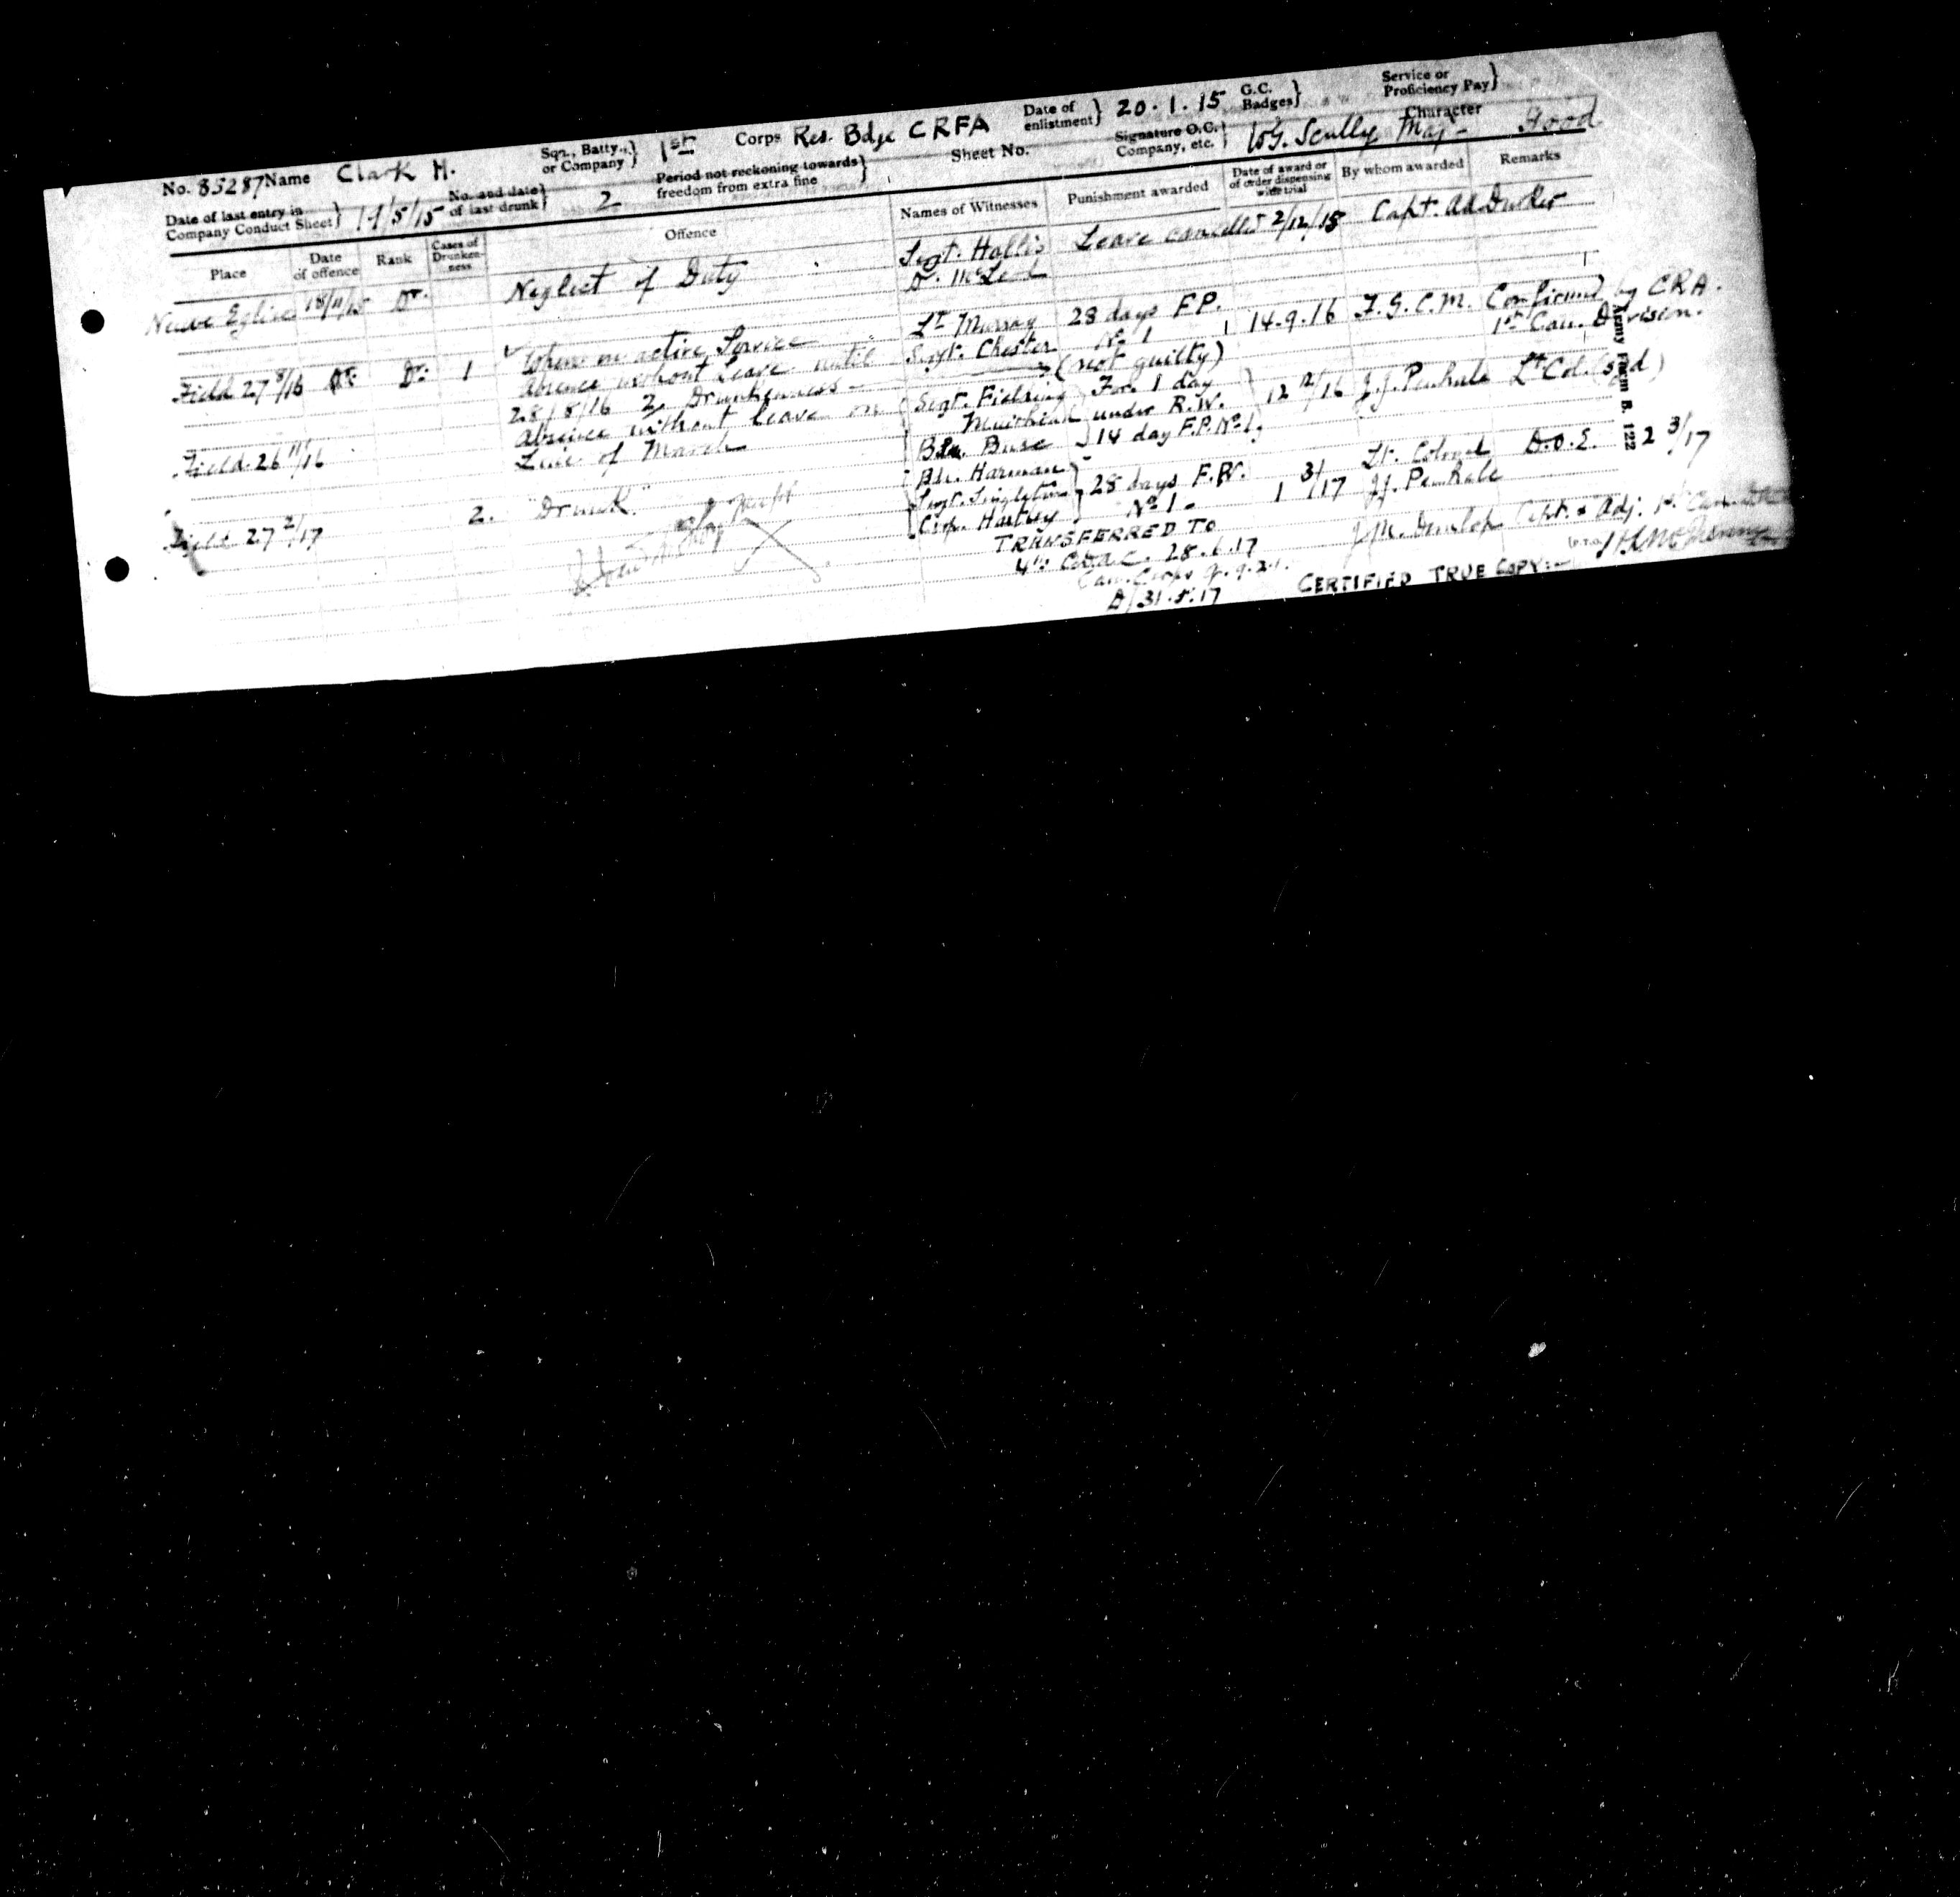 No. 85287 Name Clark H. Sqn., Batty., or Company } 1st Corps Res. Bdge CRFA Date of enlistment } 20.1.15 G.C. Badges } Service or Proficiency Pay }
Date of last entry in Company Conduct Sheet } No. and date of last drunk } 2 Period not reckoning towards freedom from extra fine } Sheet No. Signature O.C. Company, etc. } Scully Maj Character Good
Place Date of offence Rank Cases of Drunkenness Offence Names of Witnesses Punishment awarded Date of award or of order dispensing with trial By whom awarded Remarks
Neuve Eglise 18/11/15 Dr. Neglect of Duty Sergt. Hollis Leave cancelled 2/12/15 Capt.
Dr.
Field 27 8/16 Dr. Dr. 1 When on active Service Lt Murray 28 days F.P. 14.9.16 F.G.C.M. Confirmed by CRA.
absence without leave until Sergt. Chester No 1 1st Can. Division.
28/8/16 2 Drunkenness (not guilty)
Field 26 11/16 absence without leave on Sergt. Fielding For. 1 day 12 12/16 J.J. Penhale Lt Col. (sgd)
Line of March Muirhead under R.W.
Buse 14 day F.P. No 1.
Field 27 2/17 2. "Drunk." Harman 28 days F.P. 1 3/17 Lt. Colonel D.O.E. 2 3/17
Sergt. Singleton No 1 - J.J. Penhale
Hartney
TRANSFERRED TO J.M. Dunlop Capt. & Adj. 1st
4th C.D.A.C. 28.6.17 (P.T.O.)
Can. Corps
D/31.5.17 CERTIFIED TRUE COPY:-
Army Form B. 122